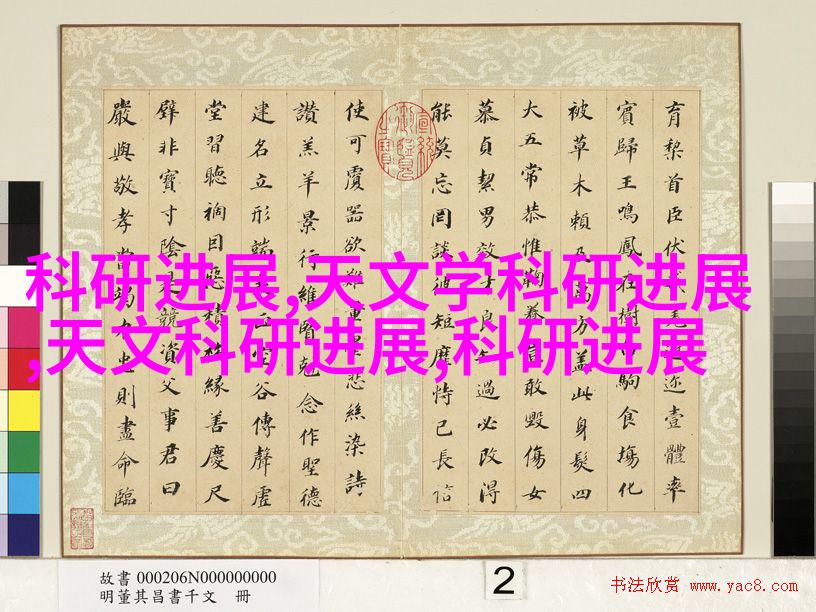 育棃首臣伏戎羌遐迩壹體率
賓歸王鳴鳳在樹白駒食塲化
被草木賴及萬方盖此身髮四
大五常恭惟鞠養豈敢毀傷女
慕貞絜男效才良知過必改得
能莫忘罔談彼短靡恃己長信
使可覆器欲難量墨悲絲染詩
讚羔羊景行維賢剋念作聖德
建名立形端表正空谷傳聲虛
堂習聽禍因惡積福緣善慶尺
璧非寶寸陰是競資父事君曰
嚴與敬孝當竭力忠則盡命臨
科研进展,天文学科研进展
,天文科研进展,科研进展
故書 000206N000000000
明董其昌書千文 冊
2
书法欣赏 www.yac8.com